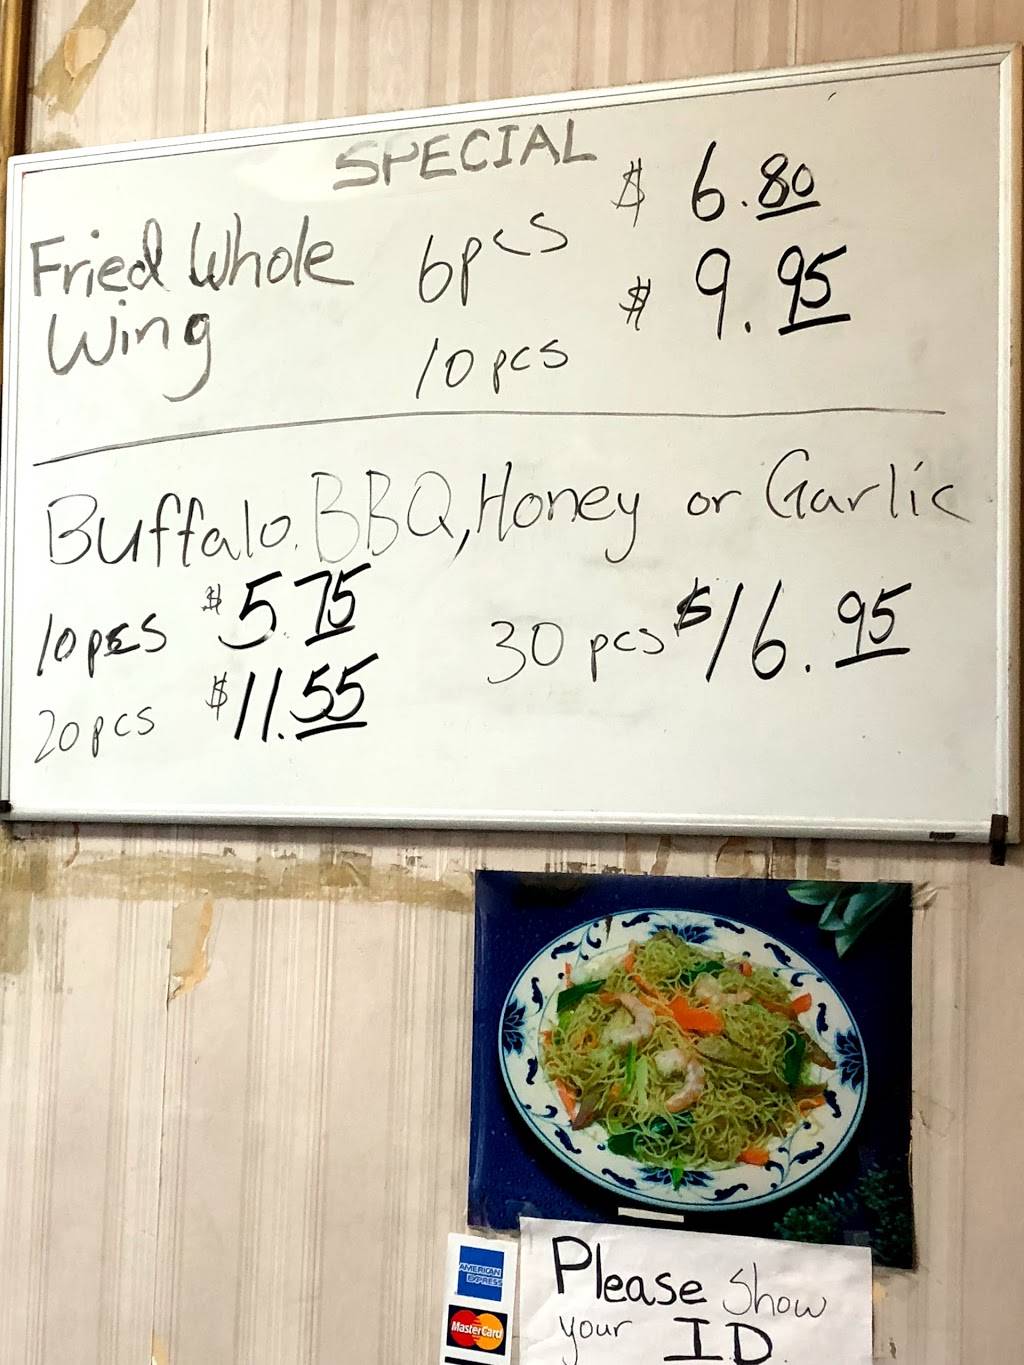 SPECIAL
Fried Whole Wing
6pcs $ 6.80
10 pcs $ 9.95
Buffalo, BBQ, Honey or Garlic
10pcs $5.75
20pcs $11.55
30 pcs $16.95
AMERICAN
EXPRESS
MasterCard
Please Show
your ID